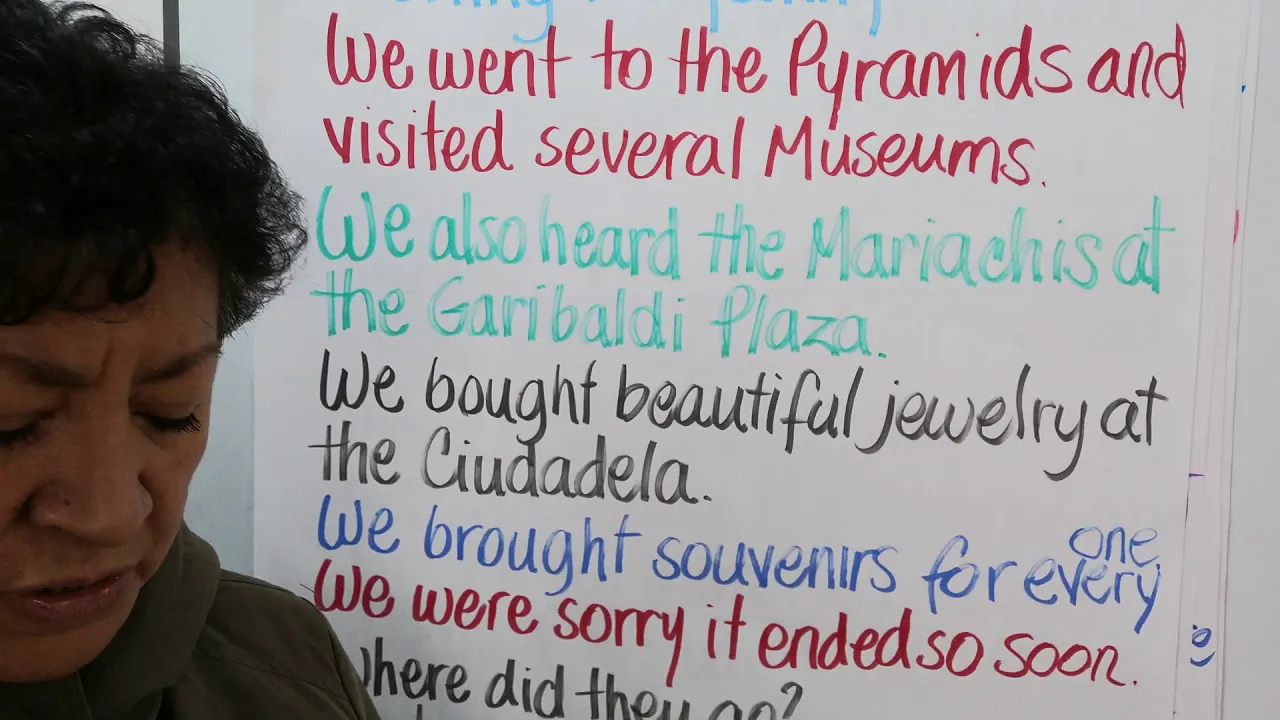 We went to the Pyramids and
visited several Museums.
We also heard the Mariachis at
the Garibaldi Plaza.
We bought beautiful jewelry at
the Ciudadela.
We brought souvenirs for every
one
We were sorry it ended so soon.
here did they go?